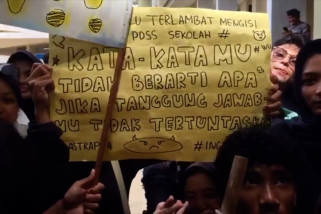 U TERLAMBAT MENGISI
PDSS SEKOLAH #
KATA-KATAMU
TIDAK BERARTI APA
JIKA TANGGUNG JAWAB
MU TIDAK TERTUNTASKA
#ING